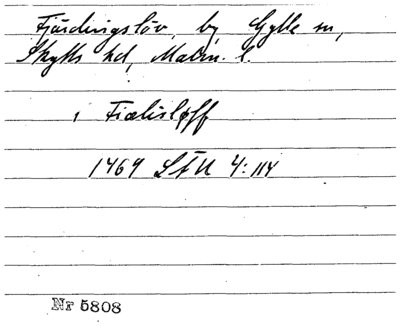 Fjärdingslöv, by, Gylle sn,
Skytts hd, Malm. l.
i Fiælisløff
1469 SFU 4:114
Nr 5808